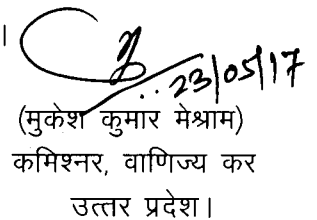 ।
23/05/17
(मुकेश कुमार मेश्राम)
कमिश्नर, वाणिज्य कर
उत्तर प्रदेश।